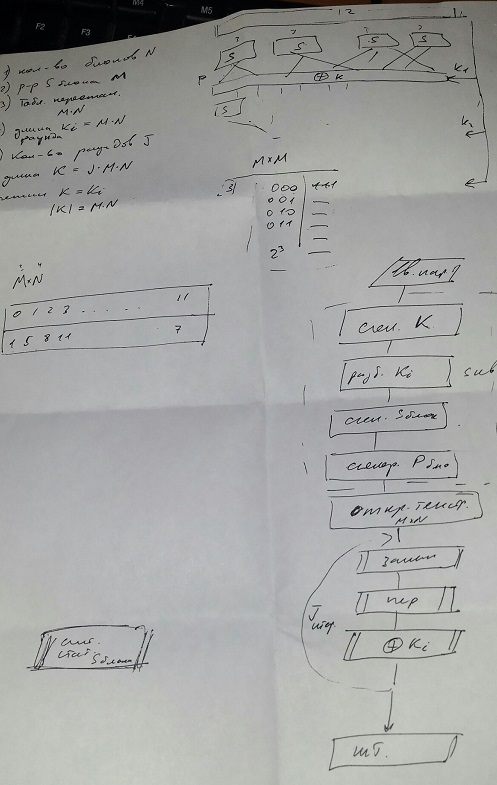 F2
F3
M5
кол-во блоков N
2) р-р S блока M
3) Табл. перестан.
M·N
длина Ki = M·N
раунда
кол-во раундов J
длина K = J·M·N
K = Ki
|K| = M·N
12
S S S S
P ⊕ K K1
S
K2
M×M
3 000 111
001
010
011
2³
M×N
0 1 2 3 . . . . . . 11
1 5 8 11 7
сген. K
разб. Ki
сген. Sблок
сгенер. P бло
откр. текст.
M×N
замен
пер
J итер.
⊕ Ki
шт.
стат
S блока